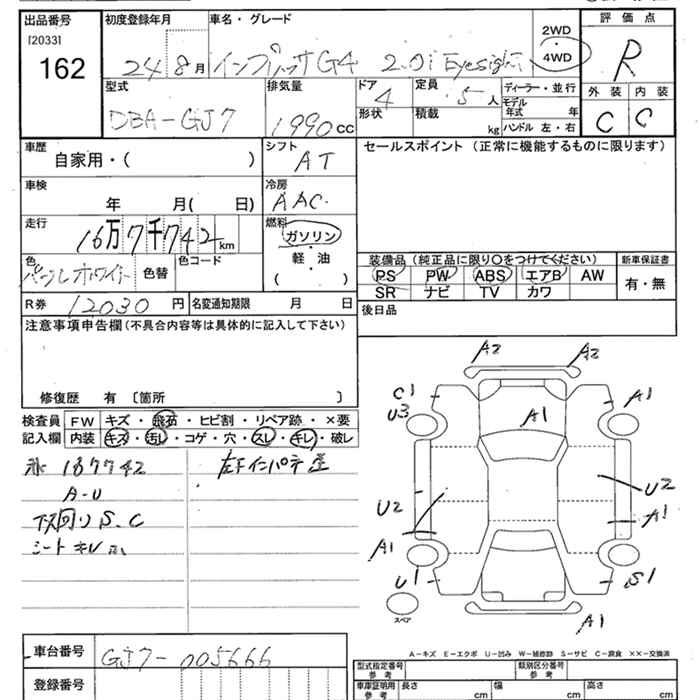 出品番号
初度登録年月
車名・グレード
2WD
・
4WD
評価点
[2033]
162
24 8月
インプレッサG4 2.0i Eyesight
R
型式
排気量
ドア
定員
ディーラー・並行
外装 内装
DBA-GJ7
1990 CC
4
5人
モデル年式 年
C C
形状
積載
kg
ハンドル 左・右
車歴
自家用・( )
シフト
AT
セールスポイント (正常に機能するものに限ります)
車検
年 月( 日)
冷房
AAC
走行
16万7千742 km
燃料
ガソリン
・
軽油
( )
色
パールホワイト
色替
色コード
装備品 (純正品に限り○をつけてください)
新車保証書
PS PW ABS エアB AW
有・無
SR ナビ TV カワ
R券
12030 円
名変通知期限 月 日
後日品
注意事項申告欄 (不具合内容等は具体的に記入して下さい)
修復歴 有 〔箇所 〕
検査員
FW キズ・飛石・ヒビ割・リペア跡・×要
記入欄
内装 キズ・汚レ・コゲ・穴・スレ・キレ・破レ
167742
A-U
下回りS.C
シート
左Fインパネ
A2 A2
C1
U3
A1
A1
U2
U2
A1
A1
U1
S1
A1
スペア
A-キズ E-エクボ U-凹み W-補修跡 S-サビ C-腐食 ××-交換済
車台番号
GJ7-005666
登録番号
型式指定番号 参考
類別区分番号 参考
車庫証明用 参考
長さ cm
幅 cm
高さ cm